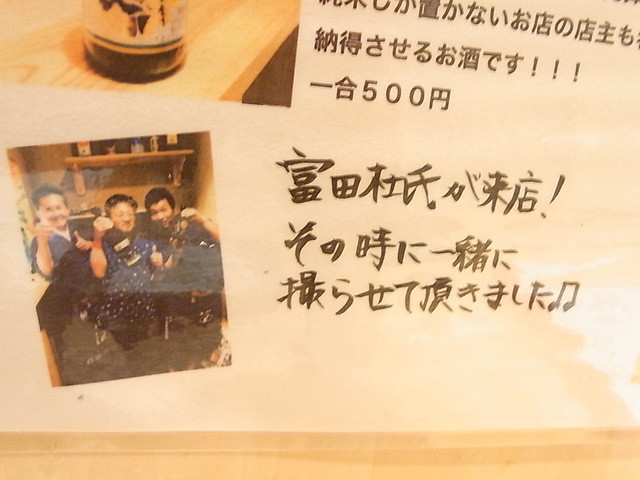 純米しか置かないお店の店主も
納得させるお酒です！！！
一合５００円
富田杜氏が来店!
その時に一緒に
撮らせて頂きました♫